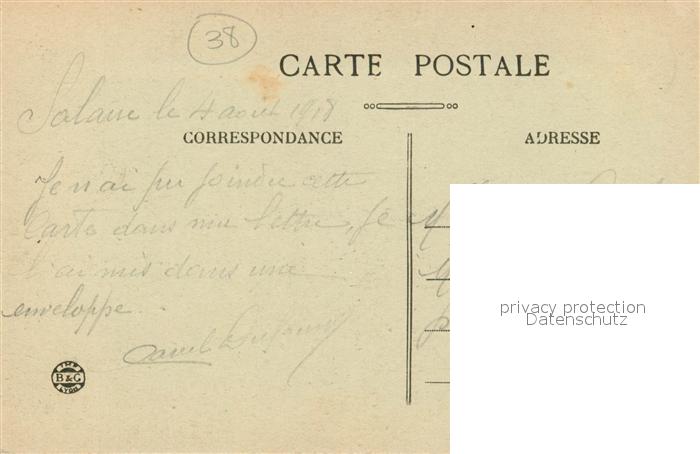 38
CARTE POSTALE
Salaise le 4 août 1918
CORRESPONDANCE
ADRESSE
Je n'ai pu joindre cette
carte dans ma lettre, je
l'ai mis dans une
enveloppe.
privacy protection
Datenschutz
IMP
B&G
LYON